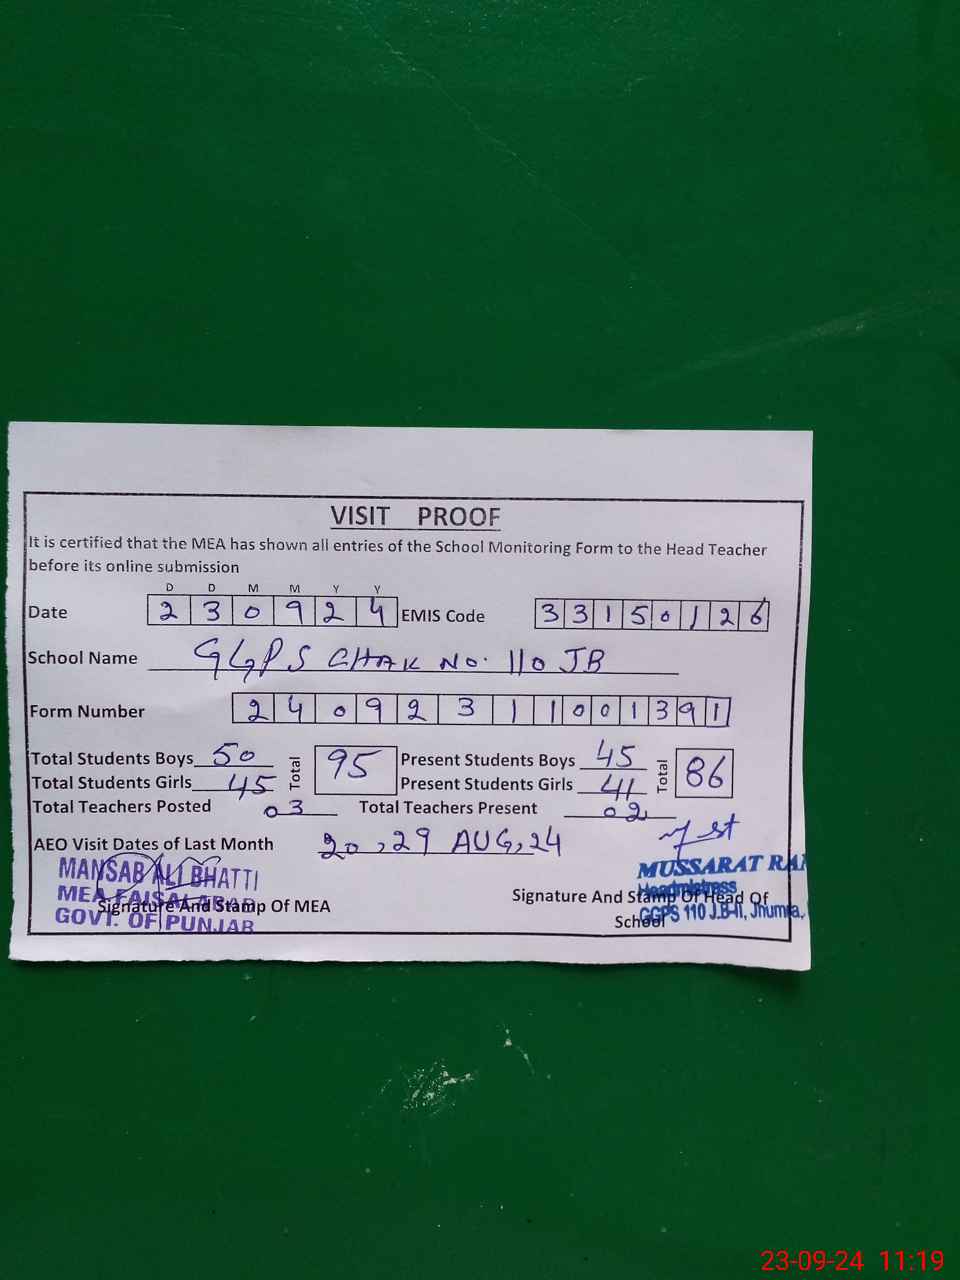 VISIT PROOF
It is certified that the MEA has shown all entries of the School Monitoring Form to the Head Teacher
before its online submission
D D M M Y Y
Date 2 3 0 9 2 4 EMIS Code 3 3 1 5 0 1 2 6
School Name GGPS CHAK NO. 110 JB
Form Number 2 4 0 9 2 3 1 1 0 0 1 3 9 1
Total Students Boys 50 Total 95 Present Students Boys 45 Total 86
Total Students Girls 45 Present Students Girls 41
Total Teachers Posted 03 Total Teachers Present 02
AEO Visit Dates of Last Month 20, 29 AUG, 24
MANSAB ALI BHATTI
MEA FAISALABAD
GOVT. OF PUNJAB
Signature And Stamp Of MEA
MUSSARAT RA
Headmistress
GGPS 110 J.B-II, Jhumra,
Signature And Stamp Of Head Of
School
23-09-24 11:19